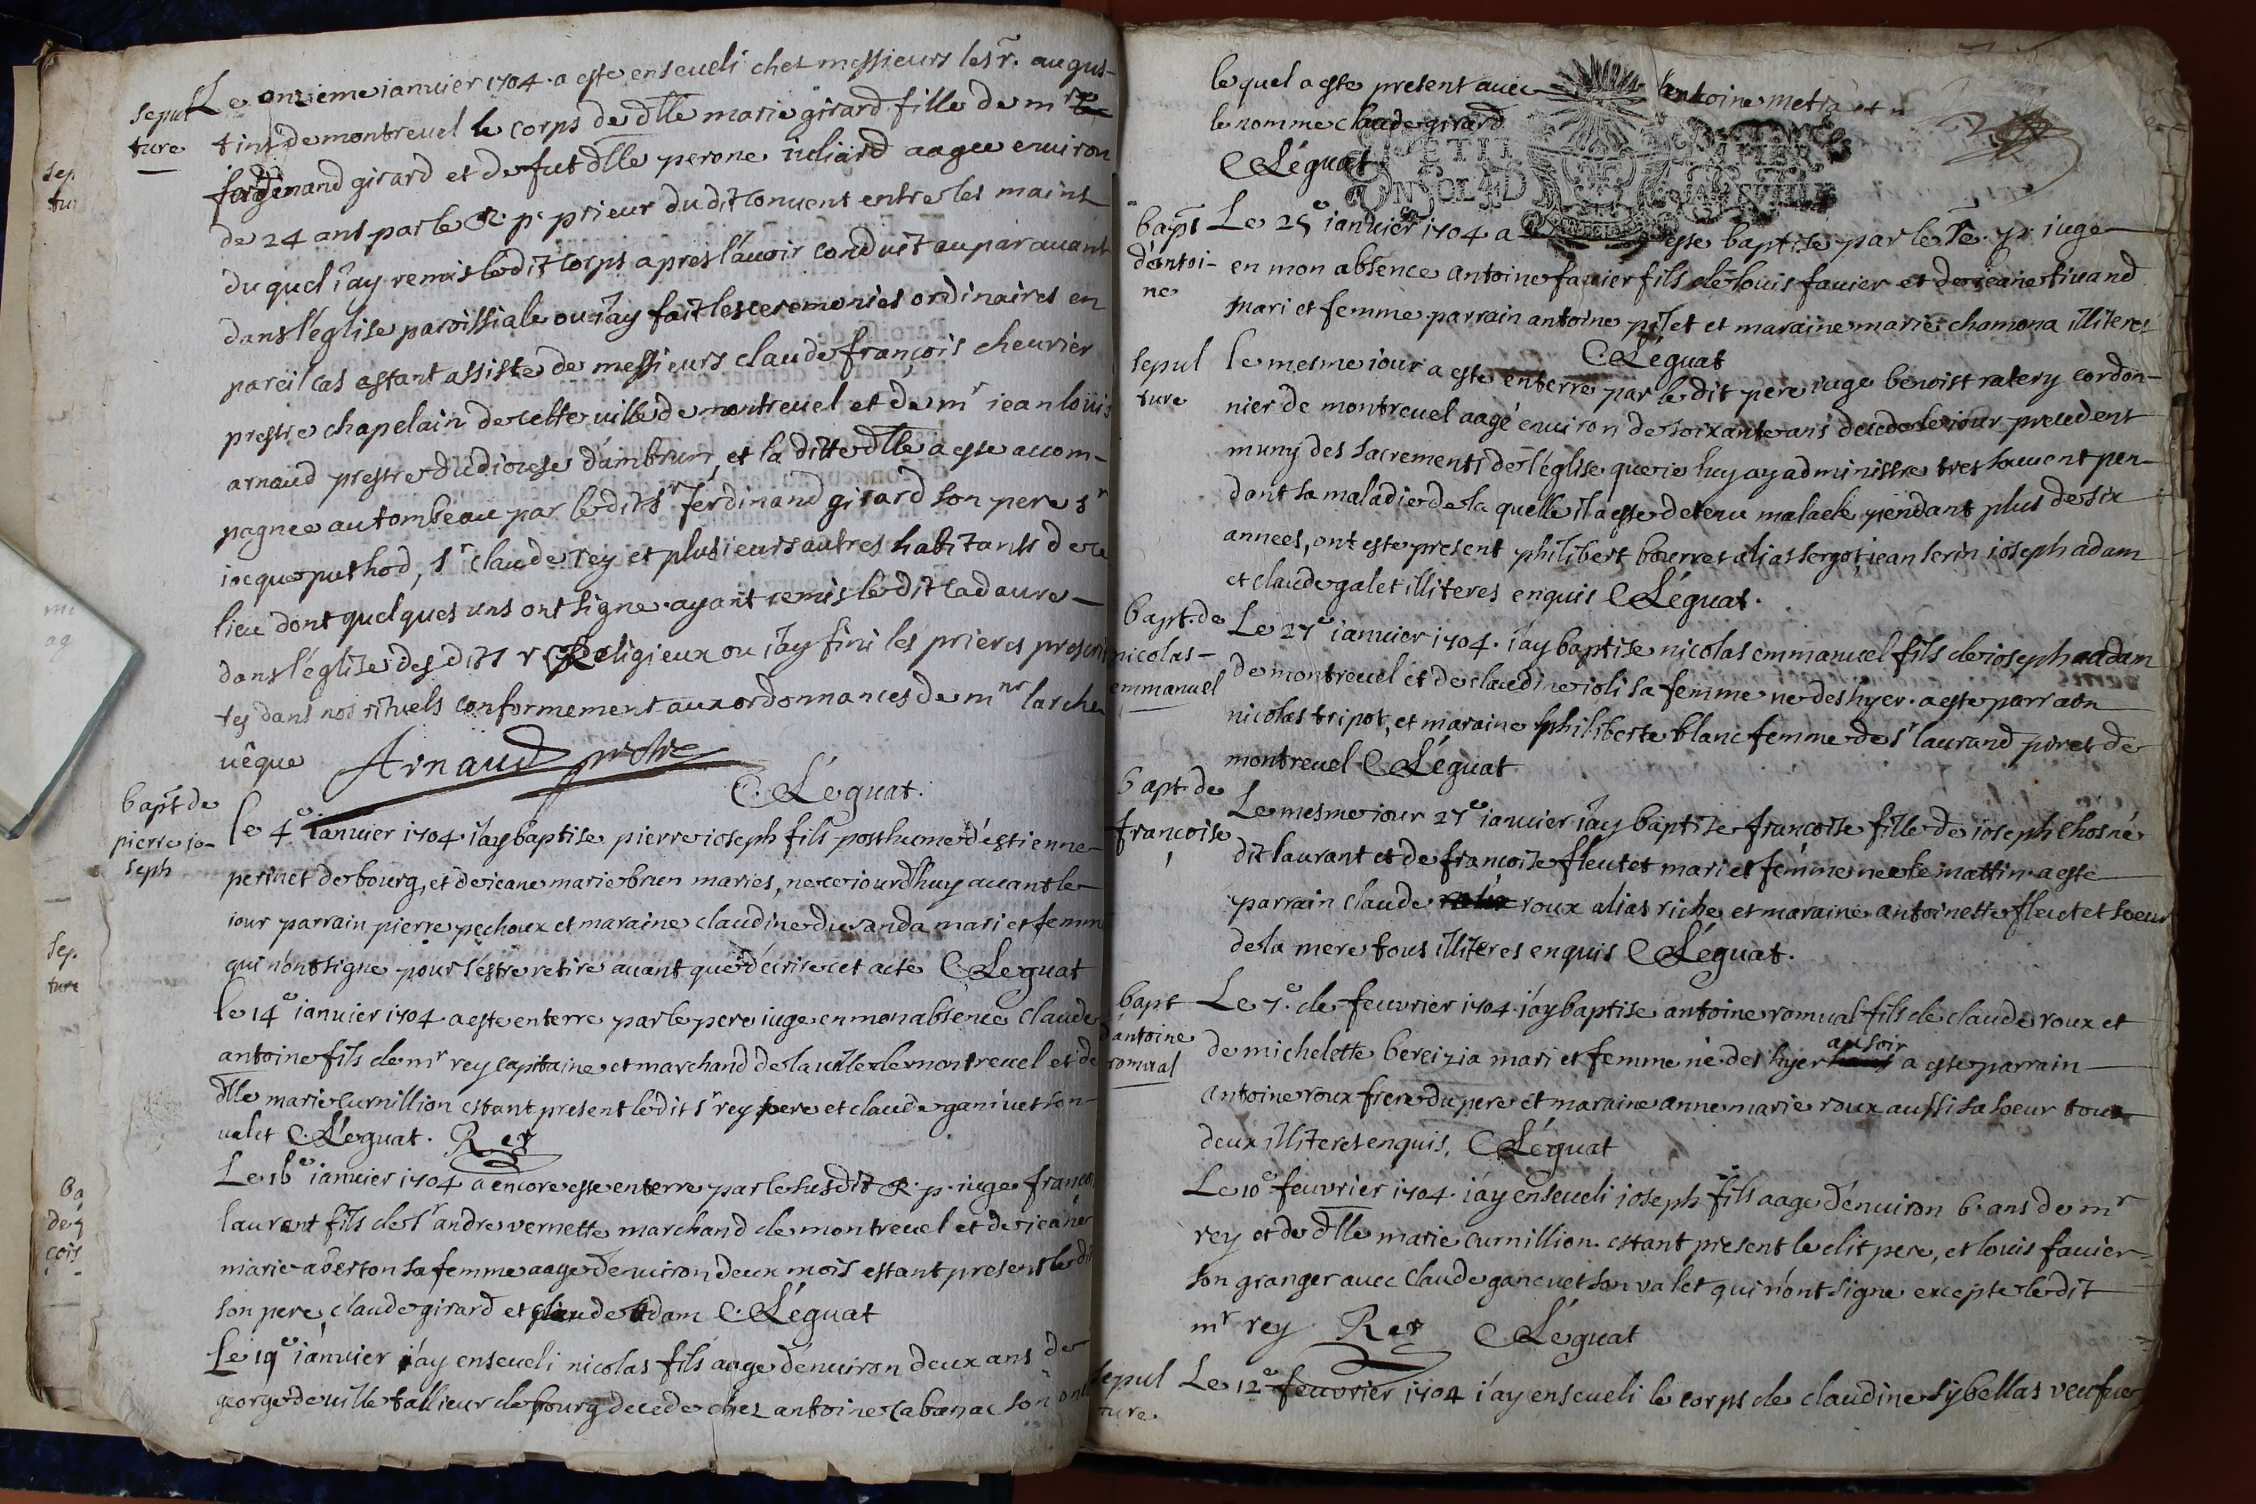 sepul
ture
Le onzieme ianuier 1704 a este enseueli chez messieurs les r. augus-
tins de montreuel le corps de dlle marie girard fille de mr
ferdinand girard et de fut dlle perone iuliard aagee enuiron
de 24 ans par le R. p. prieur du dit conuent entre les mains
du quel i'ay remis le dit corps apres l'auoir conduit au parauant
dans l'église paroissiale ou i'ay fait les ceremonies ordinaires en
pareil cas estant assiste de messieurs claude françois cheurier
prestre chapelain de cette uille de montreuel et de mr iean loüis
arnaud prestre du diocese d'ambrun, et la ditte dlle a este accom-
pagnee au tombeau par le dit sr ferdinand girard son pere sr
iacque puthod, sr claude rey et plusieurs autres habitants de ce
lieu dont quelques uns ont signe ayant remis le dit cadaure
dans l'église des dits r Religieux ou i'ay fini les prieres prescri
tes dans nos rituels conformement aux ordonnances de mnr l'arche
uêque Arnaud prestre
C. Léguat.
bapt de
pierre io-
seph
le 4e ianuier 1704 i'ay baptise pierre ioseph fils posthume d'estienne
perinet de bourg, et de ieane marie brun maries, ne ce iourd'huy auant le
iour parrain pierre pechoux et maraine claudine duranda mari et femm
qui n'ont signe pour s'estre retire auant que d'écrire cet acte C Leguat
le 14e ianuier 1704 a este enterre par le pere iuge en mon absence claude
antoine fils de mr rey capitaine et marchand de la uille de montreuel et de
dlle marie curnillion estant present le dit sr rey pere et claude ganiuet son
ualet C. Léguat. Rey
Le 16e ianuier 1704 a encore este enterre par le susdit R. p. iuge franço
laurent fils de sr andre vernette marchand de montreuel et de ieane
marie aberton sa femme aage d'enuiron deux mois estant present le dit
son pere, claude girard et claude Adam C. Léguat
Le 19e ianuier i'ay enseueli nicolas fils aage d'enuiron deux ans de
george deuille tallieur de bourg decede chez antoine cabanac son
le quel a este present auec antoine
le nomme claude girard
C Léguat
PETIT PAPIER
bapt
d'antoi-
ne
Le 25e ianuier 1704 a este baptise par le Re. p. iuge
en mon absence antoine fauier fils de louis fauier et de ieane tiuand
mari et femme parrain antoine pilet et maraine marie chamona illiteres
C. Léguat
sepul
ture
le mesme iour a este enterre par le dit pere iuge benoist ratery cordon-
nier de montreuel aagé enuiron de soixante ans decede le iour precedent
muny des sacrements de l'église que ie luy ay administre tres souuent pen-
dant sa maladie de la quelle il a este detenu malade pendant plus de six
annees, ont este present philibert bourret alias sergot, iean serin ioseph adam
et claude galet illiteres enquis C Léguat.
bapt. de
nicolas-
emmanuel
Le 27e ianuier 1704. i'ay baptise nicolas emmanuel fils de ioseph adam
de montreuel et de claudine ioli sa femme ne des hyer. a este parrain
nicolas tripot, et maraine philiberte blanc femme de sr laurand piret de
montreuel C Léguat
bapt. de
françoise
Le mesme iour 27e ianuier i'ay baptise françoise fille de ioseph Chosné
dit laurant et de françoise fleutet mari et femme nee le mattin a este
parrain claude roux alias riche et maraine antoinette fleutet soeur
de la mere tous illiteres enquis C Léguat.
bapt
d'antoine
romual
Le 7e. de feuurier 1704 i'ay baptise antoine romual fils de claude roux et
de michelette bereizia mari et femme né des hyer au soir a este parrain
antoine roux frere du pere et maraine anne marie roux aussi sa soeur tous
deux illiteres enquis, C Léguat
Le 10e feuurier 1704. i'ay enseueli ioseph fils aage d'enuiron 6. ans de mr
rey et de dlle marie curnillion estant present le dit pere, et louis fauier
son granger auec claude ganeuet son valet qui n'ont signe excepte le dit
mr rey Rey C Léguat
sepul
ture
Le 12e feuurier 1704 i'ay enseueli le corps de claudine sybellas veufue